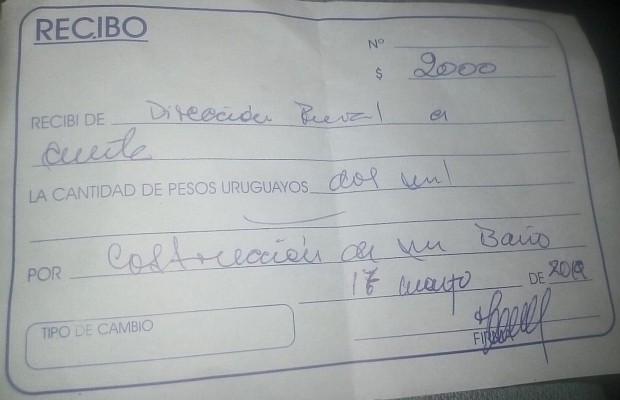 RECIBO
Nº
$ 2000
RECIBI DE Dirección Rural a
cuenta
LA CANTIDAD DE PESOS URUGUAYOS dos mil
POR Costrucción de un Baño
marzo DE
TIPO DE CAMBIO
FIRMA